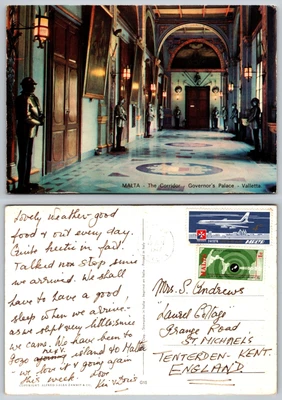 MALTA - The Corridor - Governor's Palace - Valletta
Lovely weather - good
food & out every day.
Quite hectic in fact.
Talked non stop since
we arrived. We shall
have to have a good
sleep when we arrive -
as we slept very little since
we came. We have been to
Gozo island next to Malta
- we love it & going again
this week. Love
Mrs. S. Andrews
Laurel Cottage
Grange Road
ST. MICHAELS
TENTERDEN - KENT.
ENGLAND
MALTA